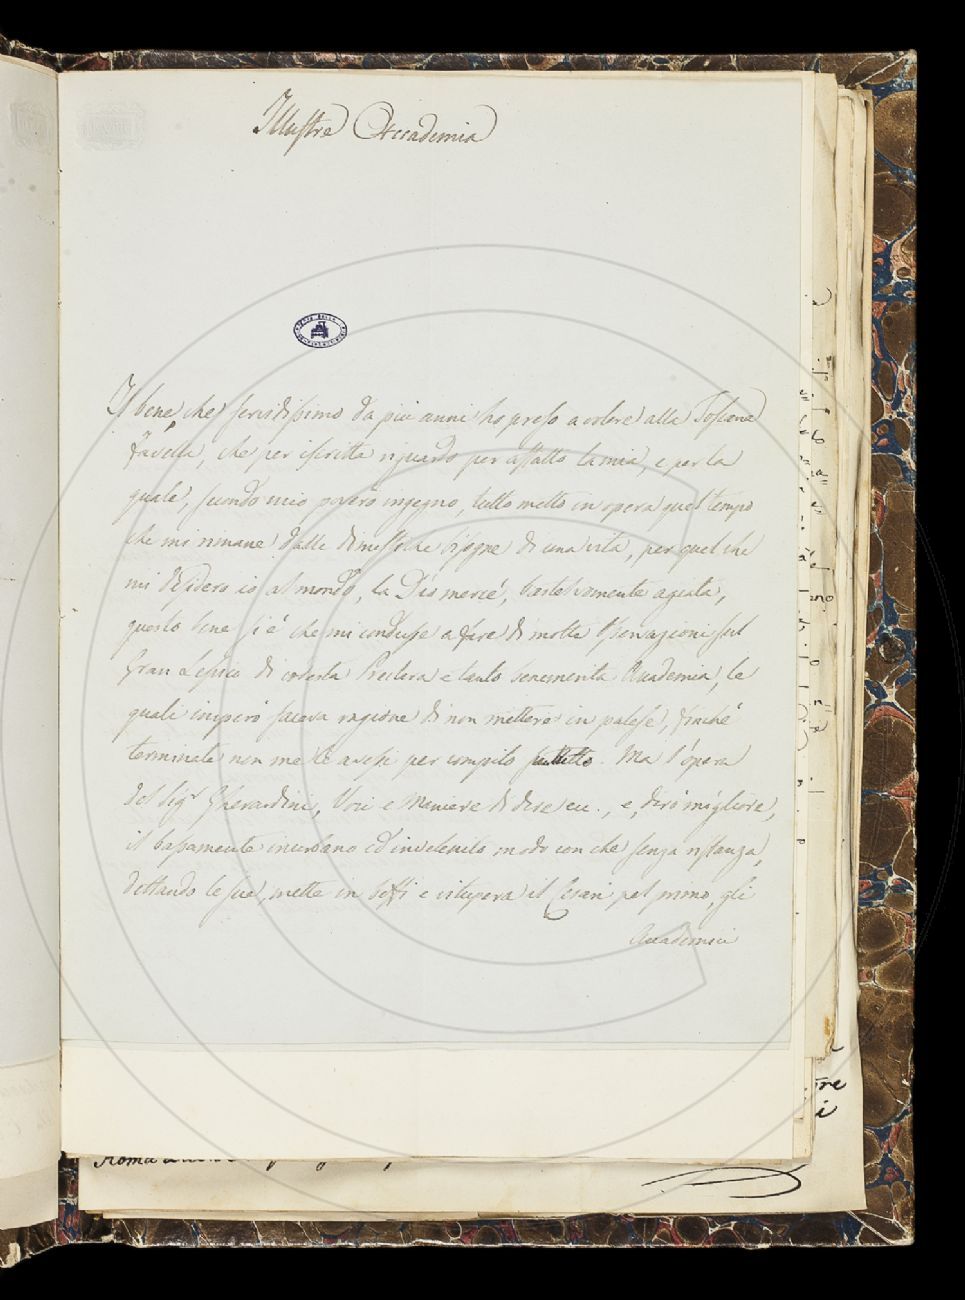 Illustre Accademia
Il bene, che fervidissimo da più anni ho preso a volere alla Toscana
favella, che per iscritto riguardo per affatto la mia, e per la
quale, secondo mio povero ingegno, tutto metto in opera quel tempo
che mi rimane dalle domestiche bisogne di una vita, per quel che
mi desidero io al mondo, la Dio mercé, bastevolmente agiata,
questo bene si è che mi condusse a fare di molte Osservazioni sul
Gran Lessico di cotesta Preclara e tanto benemerita Accademia, le
quali imperò faceva ragione di non mettere in palese, finché
terminate non me le avessi per compilo. Ma l'opera
del Sig.r Gherardini, Voci e Maniere di dire ecc., e, dirò migliore,
il bassamente inurbano ed invelenito modo con che senza ristanza,
dettando le sue, mette in beffi e vitupera il Cesari pel primo, gli
Accademici
Roma